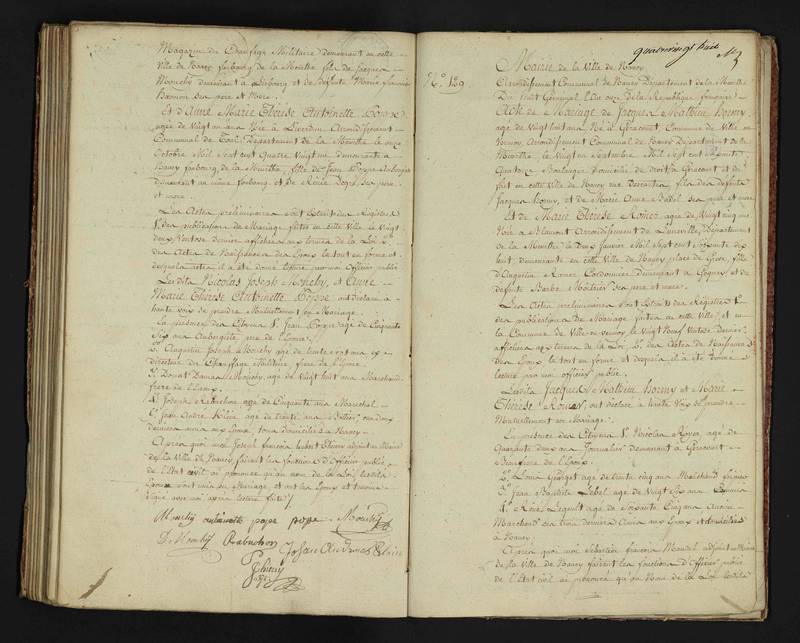 Magasin de Chauffage Militaire demeurant en cette
Ville de Nancy faubourg de la Meurthe fils de Jacques
Mouchy demeurant à faubourg et de défunte Marie françoise
ses père et Mère.
Et d'Anne Marie Thérèse Antoinette Poppe
agée de Vingt un ans Née à Liverdun Arrondissement
Communal de Toul Département de la Meurthe le onze
Octobre Mil Sept cent Quatre Vingt un demeurante à
Nancy faubourg de la Meurthe, fille de Jean Poppe Aubergiste
demeurant au même faubourg et de ses père
et mere.
Les Actes préliminaires sont Extrait des Registres
des publications de Mariage faites en cette Ville le Vingt
deux Ventose dernier affichées aux termes de la Loi 2.
des Actes de Naissances des Epoux le tout en forme et
desquels actes il a été donné lecture par moi Officier public
Lesdits Nicolas Joseph Mouchy, et Anne
Marie Thérèse Antoinette Poppe ont déclaré à
haute voix se prendre Mutuellement en Mariage.
En présence des Citoyens 1. Jean Poppe agé de Cinquante
Six ans Aubergiste pere de l'Epouse.
2. Augustin Joseph Mouchy agé de trente sept ans
directeur du Chauffage Militaire frere de l'Epoux.
3. Donat Mouchy, agé de Vingt huit ans Marchand
frere de l'Epoux.
4. Joseph Rabuchon agé de Cinquante ans Marechal
Jean André Klein agé de trente ans Huilier ces deux
derniers amis aux Epoux, tous domiciliés à Nancy.
Après quoi moi Joseph françois Thiery adjoint au Maire
de la Ville de Nancy faisant les fonctions d'Officier public
de l'Etat civil ai prononcé qu'au nom de la Loi lesdits
Epoux sont unis en Mariage et ont les Epoux et temoins
signé avec moi après lecture faite /.
Mouchy antoinette pope poppe Mouchy
D Mouchy Rabuchon Johan Andreas Klein
Thiery
quatrevingt huit
N.° 129
Mairie de la Ville de Nancy
Arrondissement Communal de Nancy Département de la Meurthe
Du huit Germinal l'An onze de la République française
Acte de Mariage de Jacques Mathieu horny,
agé de Vingt huit ans Né à Giracourt Commune de Ville en
Vermoy Arrondissement Communal de Nancy Département de la
Meurthe, le Vingt un Septembre Mil Sept cent Soixante
Quatorze Boulanger Domicilié de droit à Giracourt et de
fait en cette Ville de Nancy rue fils des défunts
Jacques horny, et de Marie Anne Babel ses père et mere
Et de Marie Thérèse Romer, agée de Vingt cinq ans
Née à Blamont Arrondissement de Luneville, Département
de la Meurthe, le deux Janvier Mil Sept cent Soixante dix
huit demeurante en cette Ville de Nancy place de Grève, fille
d'Augustin Romer Cordonnier demeurant à Gogney et de
défunte Barbe ses père et mere.
Les Actes préliminaires sont Extraits des Registres 1.
des publications de Mariage faites en cette Ville, et en
la Commune de Ville en Vermoy, le Vingt Neuf Ventose dernier
affichées aux termes de la Loi, 2. des Actes de Naissances
des Epoux le tout en forme et desquels il a été donné
lecture par moi officier public.
Lesdits Jacques Mathieu horny et Marie
Thérèse Romer, ont déclaré à haute Voix se prendre
Mutuellement en Mariage.
En présence des Citoyens 1. Nicolas Royer agé de
Quarante deux ans Journalier demeurant à Giracourt
Beaufrere de l'Epoux.
2. Louis Georget agé de trente cinq ans Marchand fripier
3. Jean Baptiste Lebel agé de Vingt Six ans Commis
4. René agé de Soixante Cinq ans Ancien
Marchand ces trois derniers Amis aux Epoux et domiciliés
à Nancy.
Après quoi moi Sébastien françois Mandel adjoint au Maire
de la Ville de Nancy faisant les fonctions d'Officier public
de l'Etat civil ai prononcé qu'au Nom de la Loi lesdits